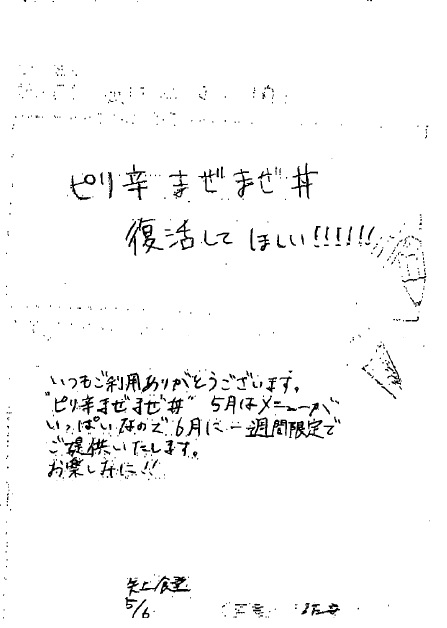 ピリ辛まぜまぜ丼
復活してほしい!!!!!!
いつもご利用ありがとうございます。
"ピリ辛まぜまぜ丼" 5月はメニューが
いっぱいなので 6月に一週間限定で
ご提供いたします。
お楽しみに!!
矢上食堂
5/6